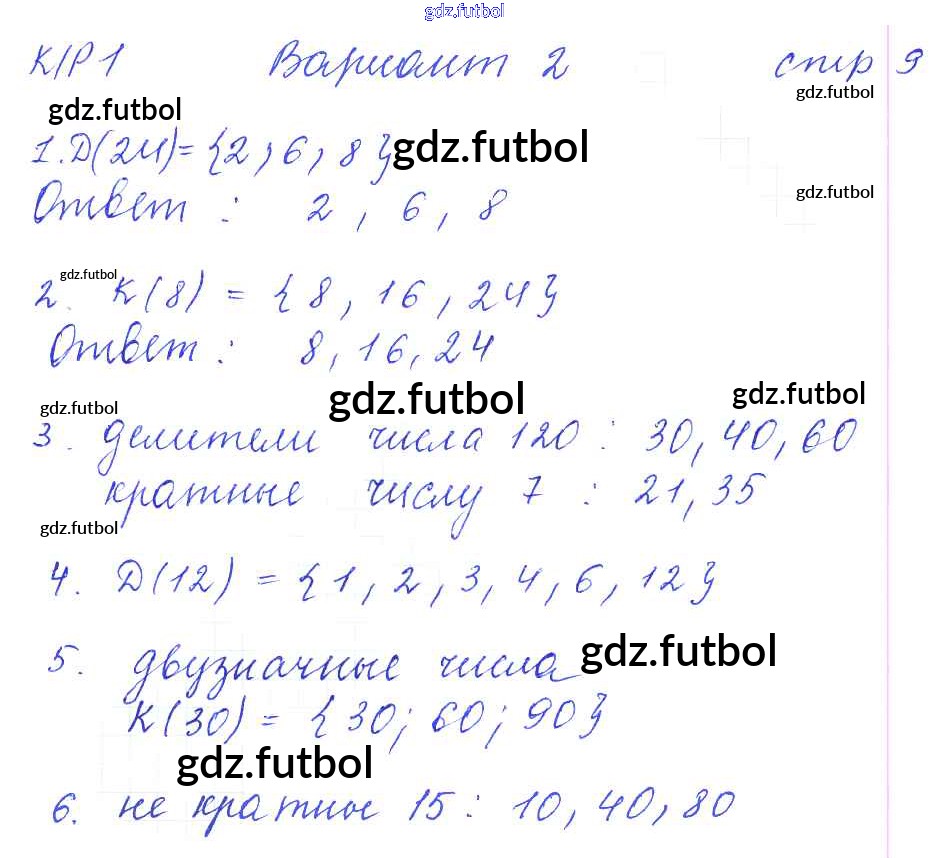 gdz.futbol
К/Р 1 Вариант 2 стр 9
gdz.futbol
gdz.futbol
1. Д(24)= {2, 6, 8} gdz.futbol
gdz.futbol
Ответ : 2, 6, 8
gdz.futbol
2. К(8) = {8, 16, 24}
Ответ : 8, 16, 24
gdz.futbol
gdz.futbol
gdz.futbol
3. делители числа 120 : 30, 40, 60
кратные числу 7 : 21, 35
gdz.futbol
4. Д(12) = {1, 2, 3, 4, 6, 12}
5. двузначные числа gdz.futbol
К(30) = {30; 60; 90}
gdz.futbol
6. не кратные 15 : 10, 40, 80